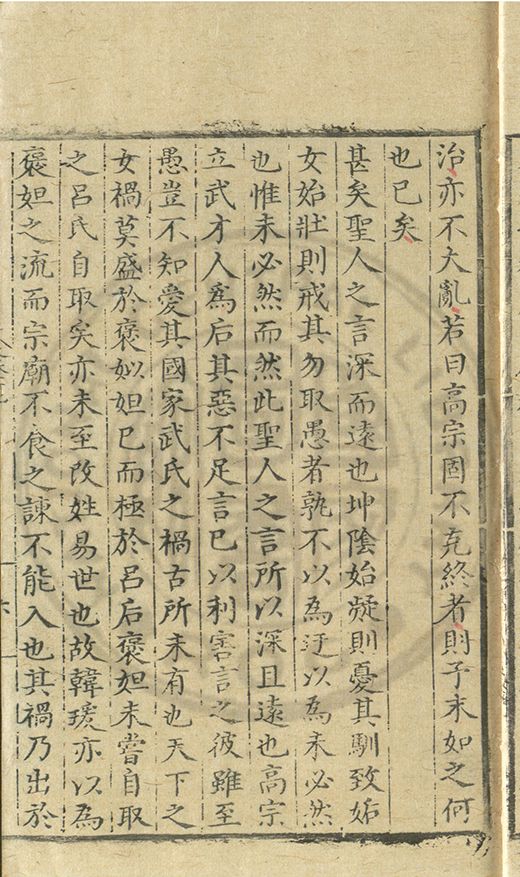 治亦不大亂若曰高宗固不克終者則予末如之何
也已矣
甚矣聖人之言深而遠也坤陰始凝則憂其馴致姤
女始壯則戒其勿取愚者孰不以為迂以為未必然
也惟未必然而然此聖人之言所以深且遠也高宗
立武才人為后其惡不足言已以利害言之彼雖至
愚豈不知愛其國家武氏之禍古所未有也天下之
女禍莫盛於褒姒妲已而極於呂后褒妲未嘗自取
之呂氏自取矣亦未至改姓易世也故韓瑗亦以為
褒妲之流而宗廟不食之諫不能入也其禍乃出於